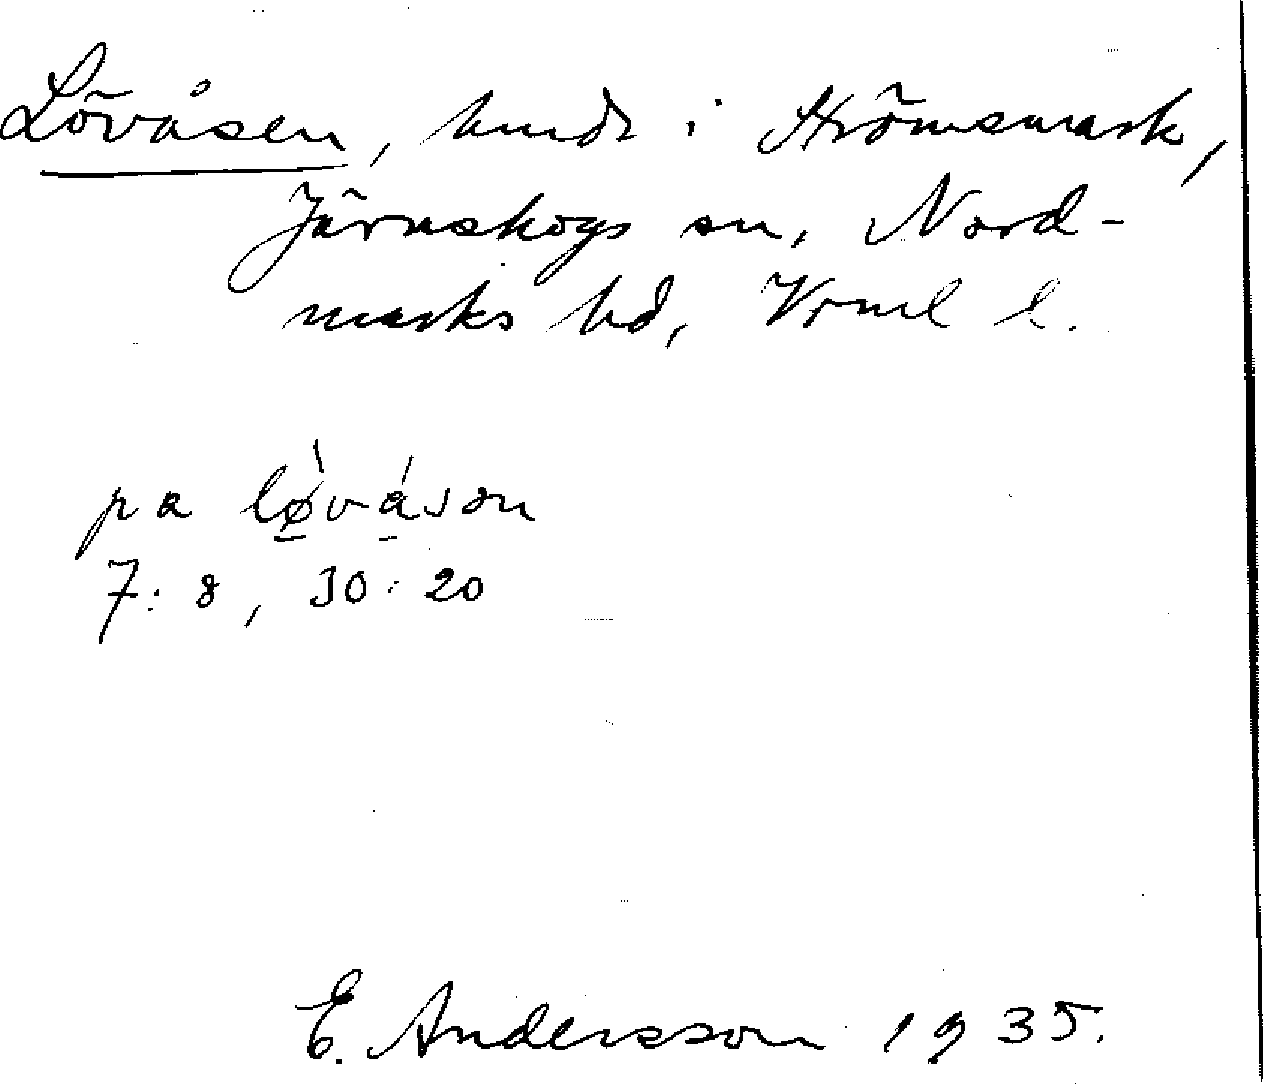 Lövåsen, hmdr i Strömsmark,
Järnskogs sn, Nord-
marks hd, Vrml l.
pa lø̀vásɘn
7:8, 30:20
E. Andersson 1935.